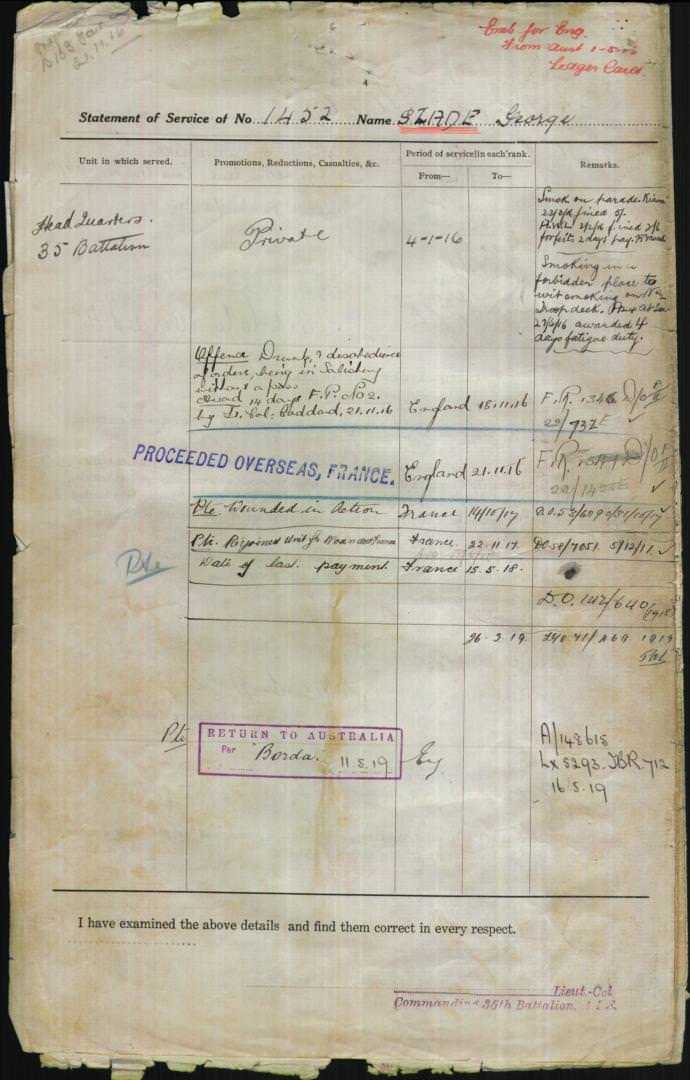 21.11.16
Emb for Eng.
From Aust 1-5-16
Ledger Card.
Statement of Service of No. 1452 Name SLADE George
Unit in which served.
Promotions, Reductions, Casualties, &c.
Period of service in each rank.
From—
To—
Remarks.
Head Quarters.
35 Battalion
Private
4-1-16
Smok on parade. Kiama
fined
fined 2/6
forfeit 2 days pay.
Smoking in a
forbidden place to
wit smoking on No 2
Troop deck. At Sea
awarded 4
days fatigue duty.
Offence Drunk, & disobedience
of orders, being in Salisbury
without a pass
award 14 days F.P. No 2.
by Lt. Col: Goddard, 21.11.16
England
18.11.16
F.R. 1346
22/737E
PROCEEDED OVERSEAS, FRANCE.
England
21.11.16
F.R.
Pte Wounded in Action
France
14/10/17
Pte
Pte. Rejoined Unit fr Wounded
France
22.11.17
D.O 59/7051 5/12/17
Date of last payment
France
15.5.18.
D.O. 142/640/1918
26-2.19.
1919
Pte
RETURN TO AUSTRALIA
Per "Borda." 11.5.19
Eng
A/148615
Lx 5293. IBR.712
16.5.19
I have examined the above details and find them correct in every respect.
Lieut-Col
Commanding 35th Battalion, A.I.F.